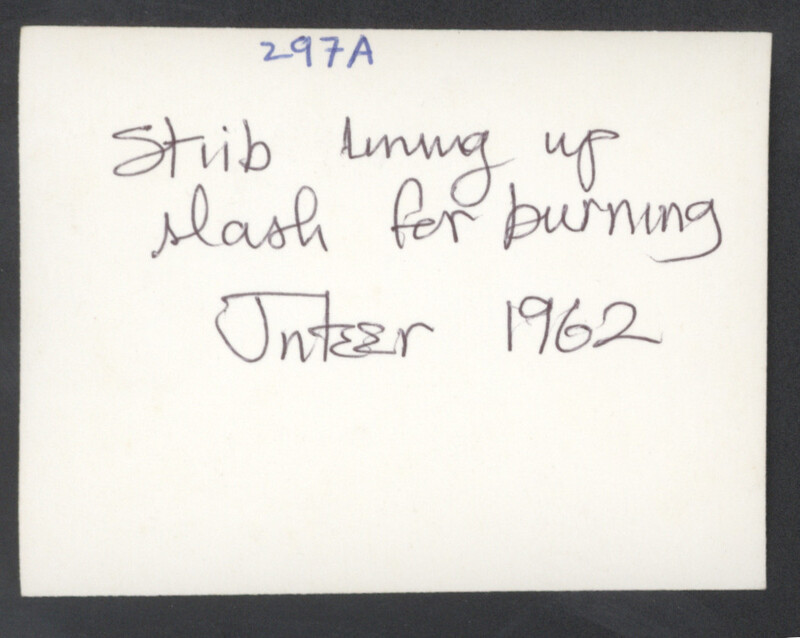 297A
Stub lining up
slash for burning
Jnteer 1962